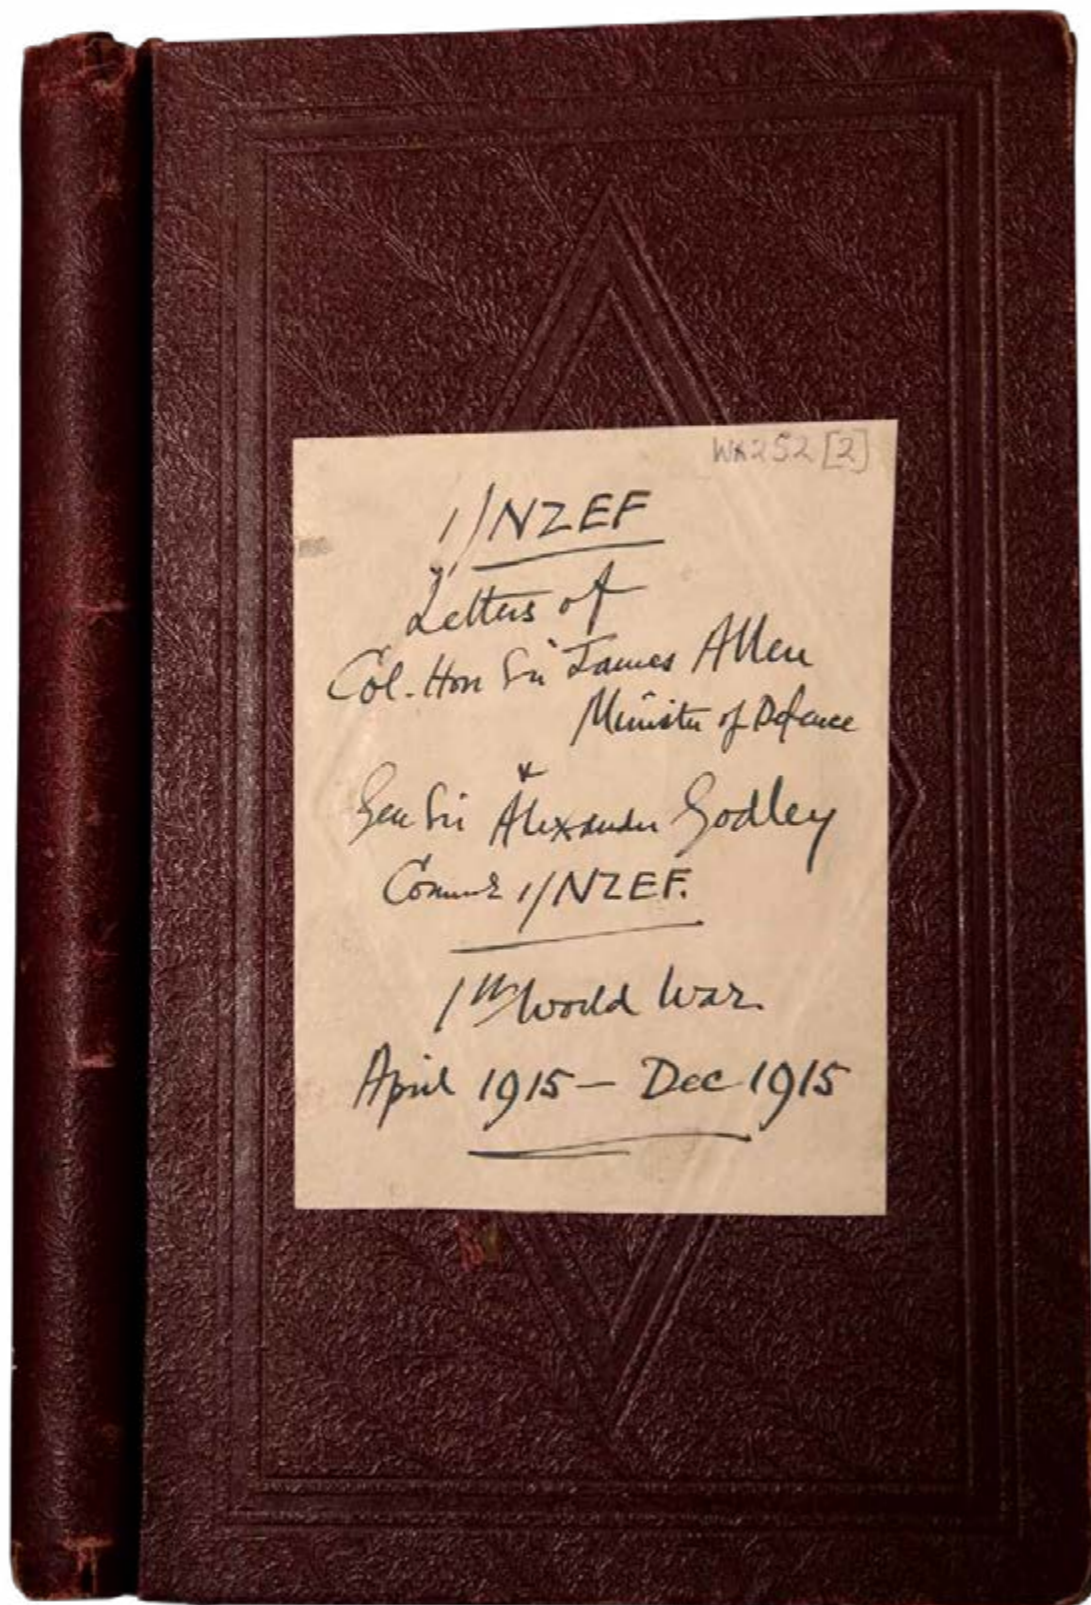 WA252 [2]
1/NZEF
Letters of
Col. Hon Sir James Allen
Minister of Defence
&
Gen Sir Alexander Godley
Commd 1/NZEF.
1st World War
April 1915 – Dec 1915